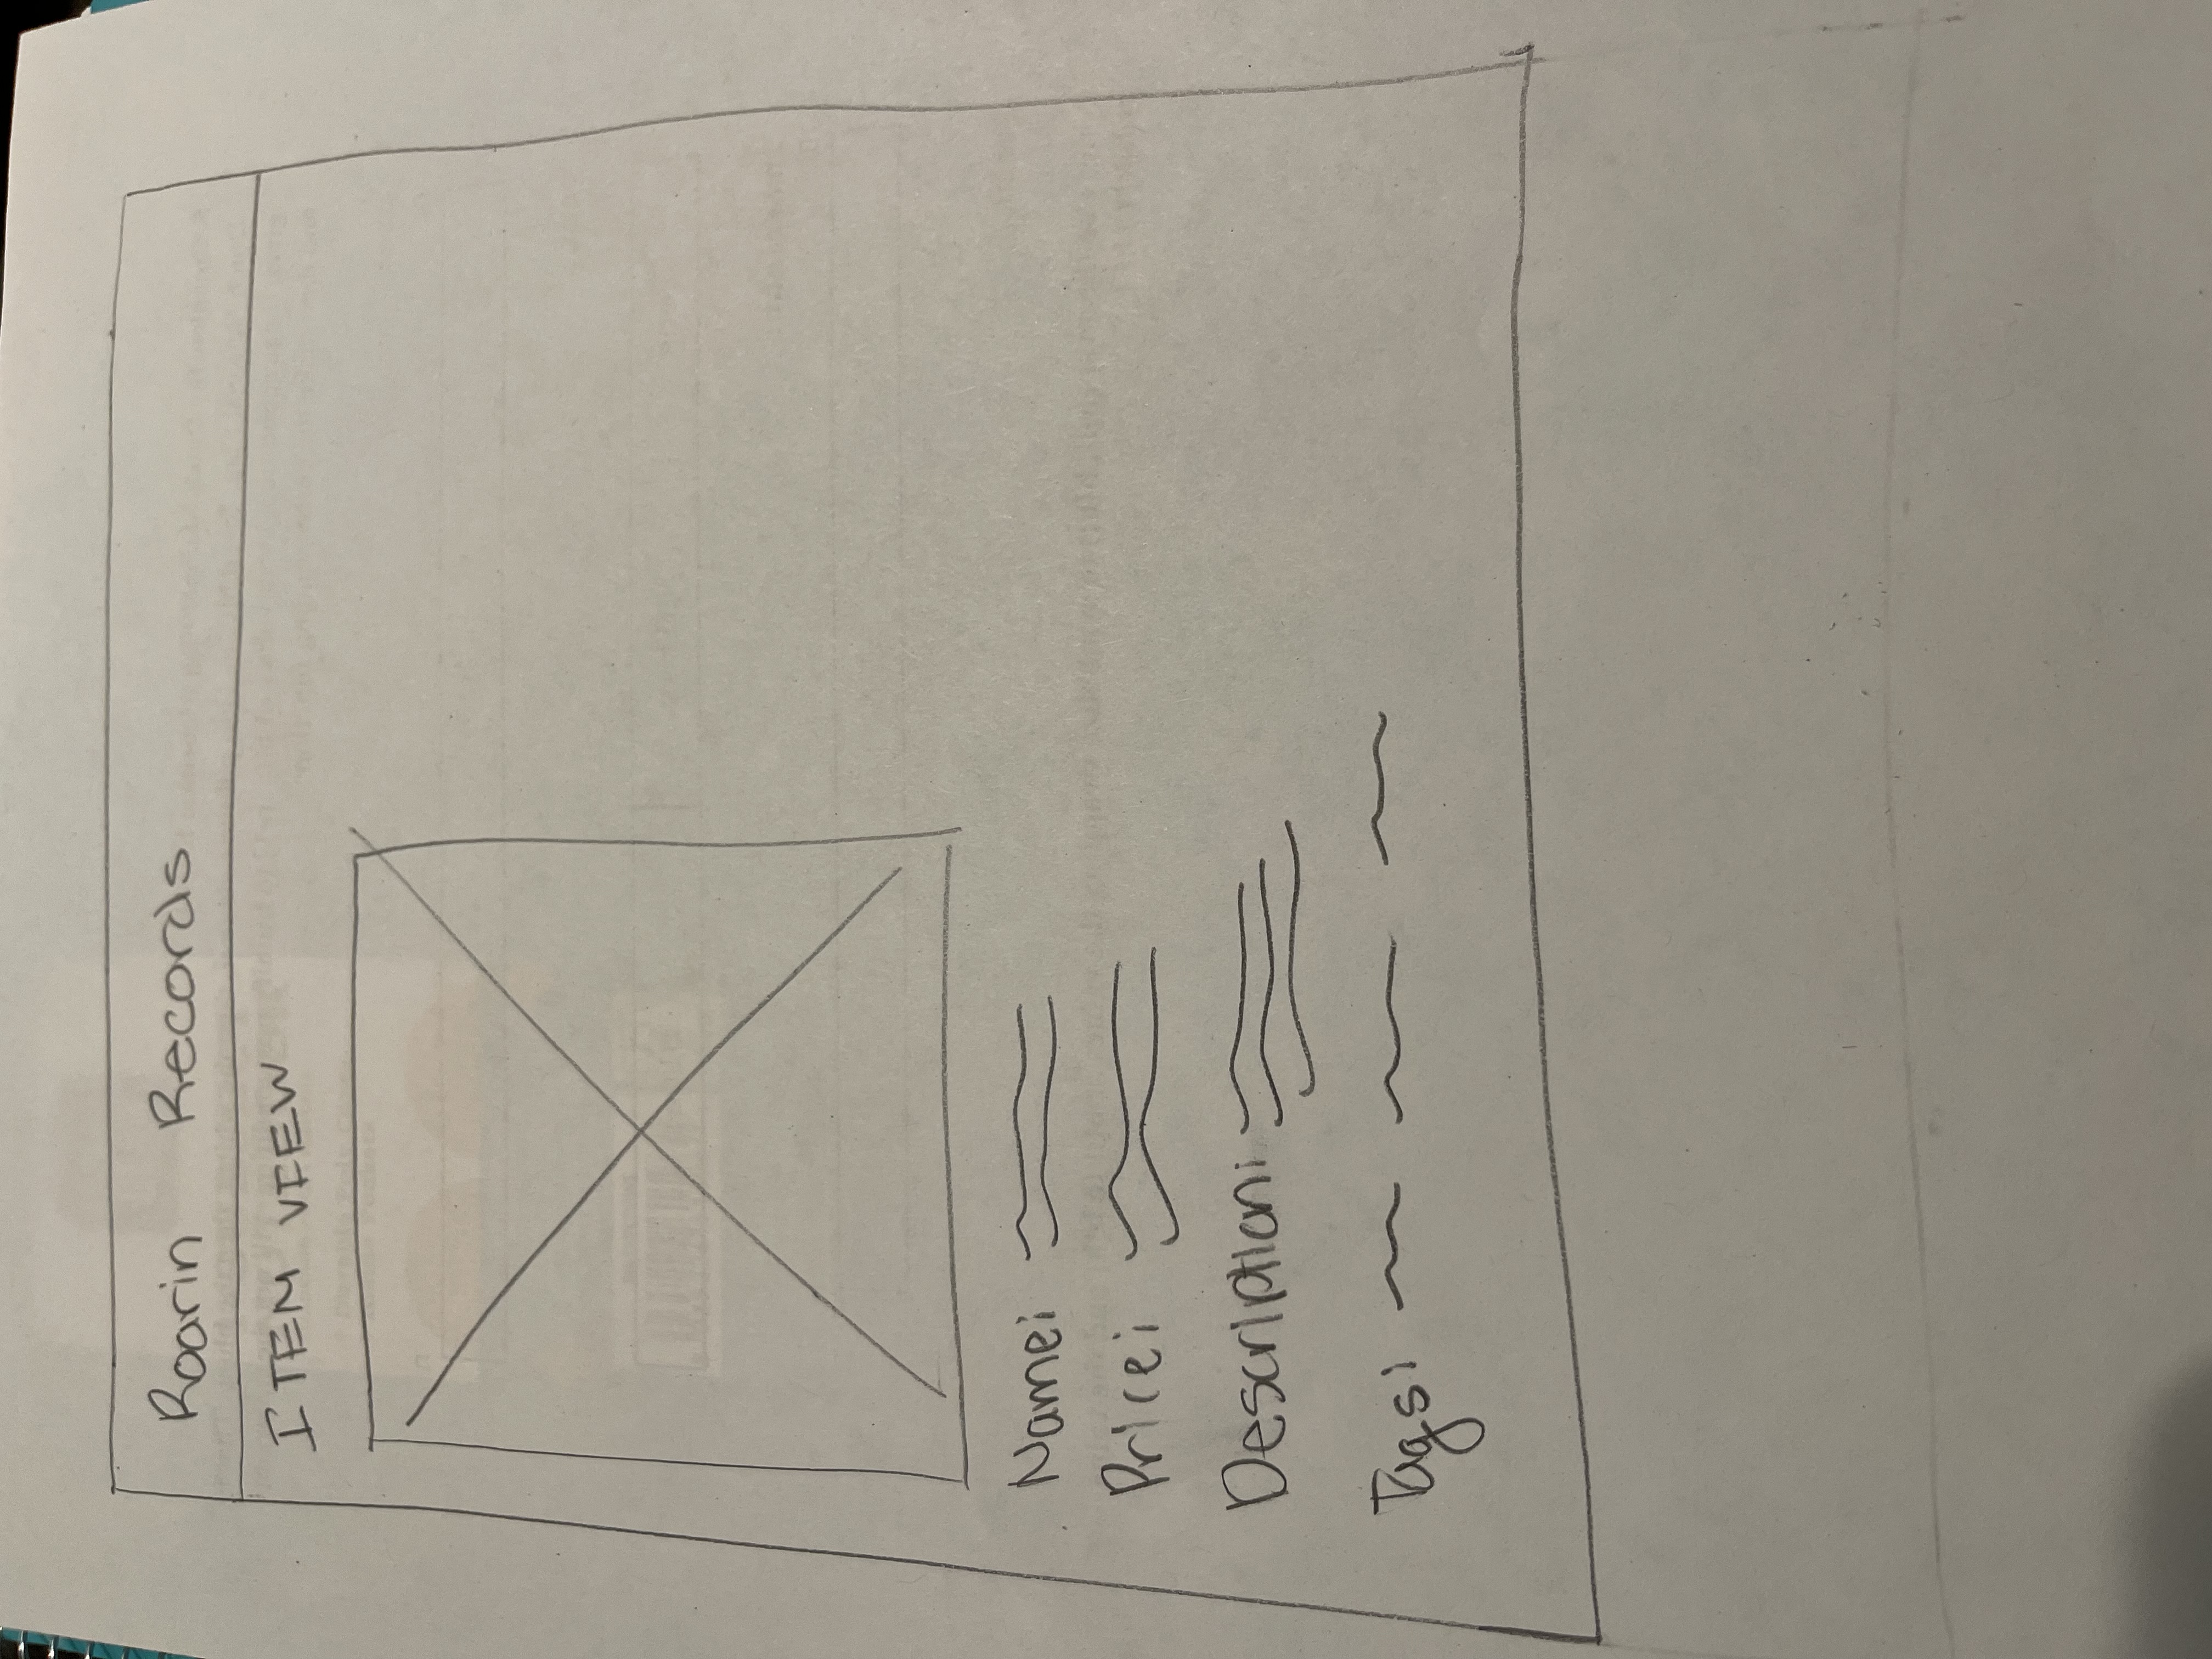 Roarin Records
ITEM VIEW
Name:
Price:
Description:
Tags: